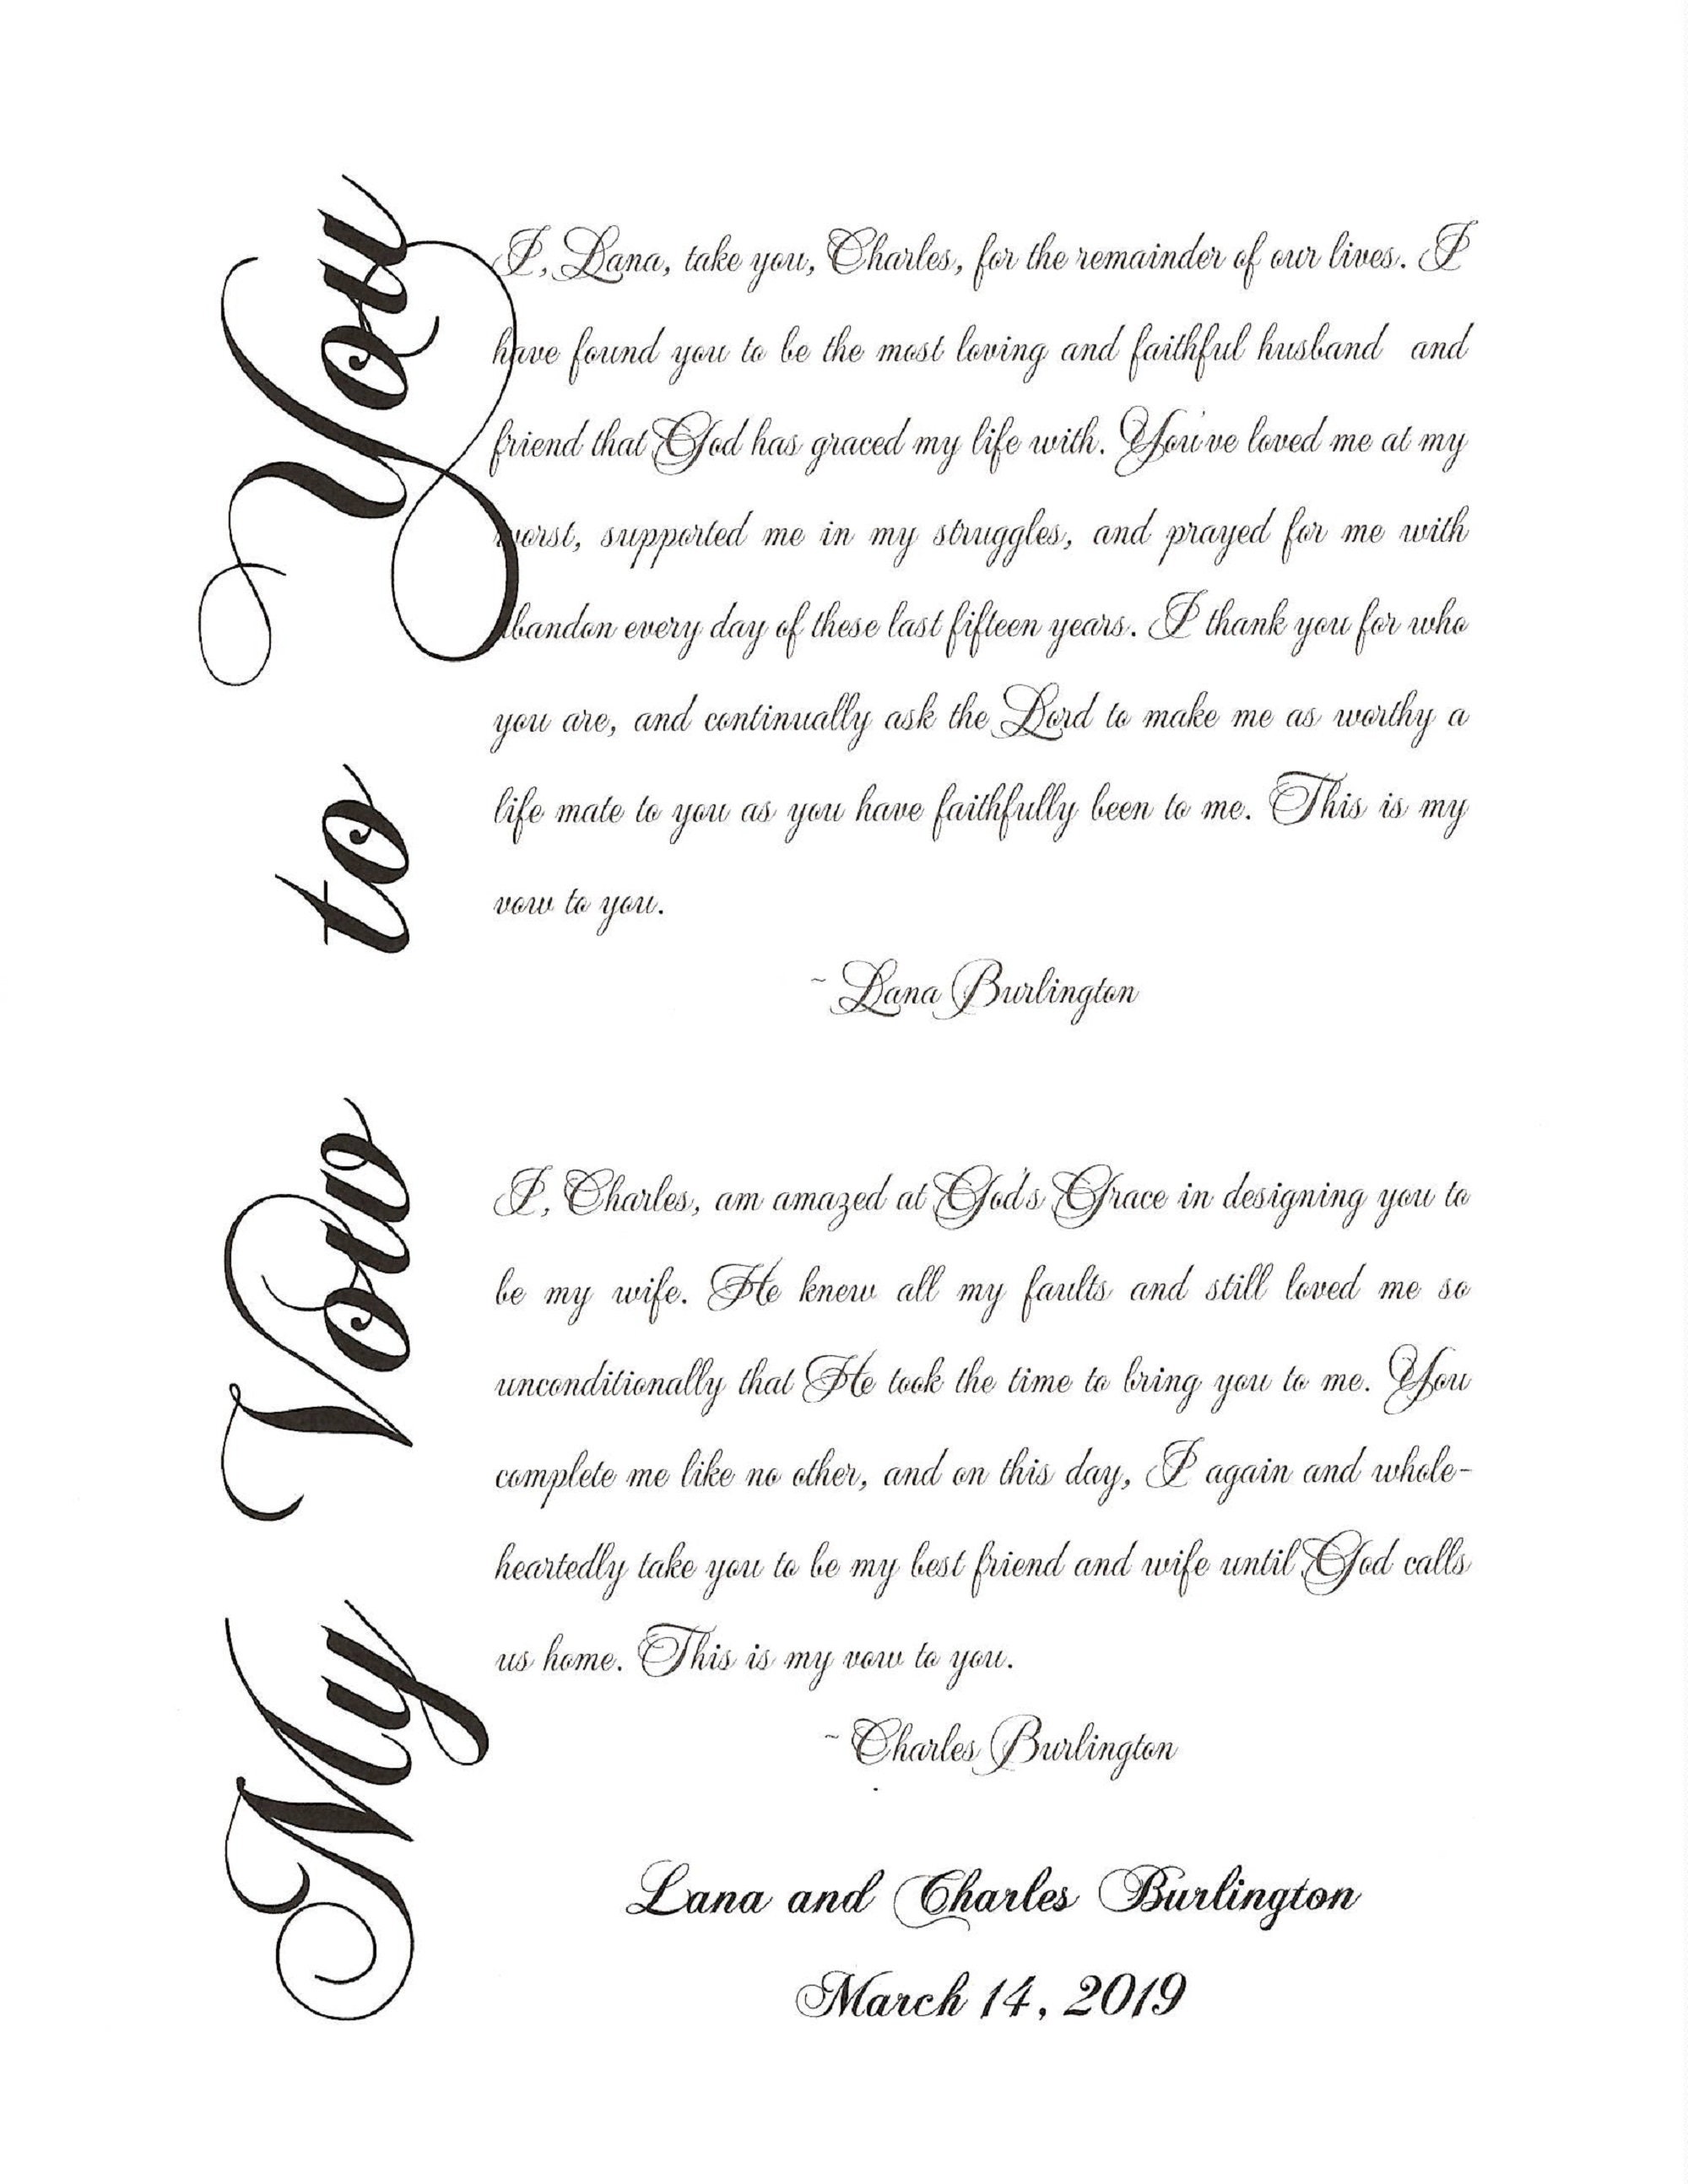 My Vow to You
I, Lana, take you, Charles, for the remainder of our lives. I
have found you to be the most loving and faithful husband and
friend that God has graced my life with. You've loved me at my
worst, supported me in my struggles, and prayed for me with
abandon every day of these last fifteen years. I thank you for who
you are, and continually ask the Lord to make me as worthy a
life mate to you as you have faithfully been to me. This is my
vow to you.
~ Lana Burlington
I, Charles, am amazed at God's Grace in designing you to
be my wife. He knew all my faults and still loved me so
unconditionally that He took the time to bring you to me. You
complete me like no other, and on this day, I again and whole-
heartedly take you to be my best friend and wife until God calls
us home. This is my vow to you.
~ Charles Burlington
Lana and Charles Burlington
March 14, 2019